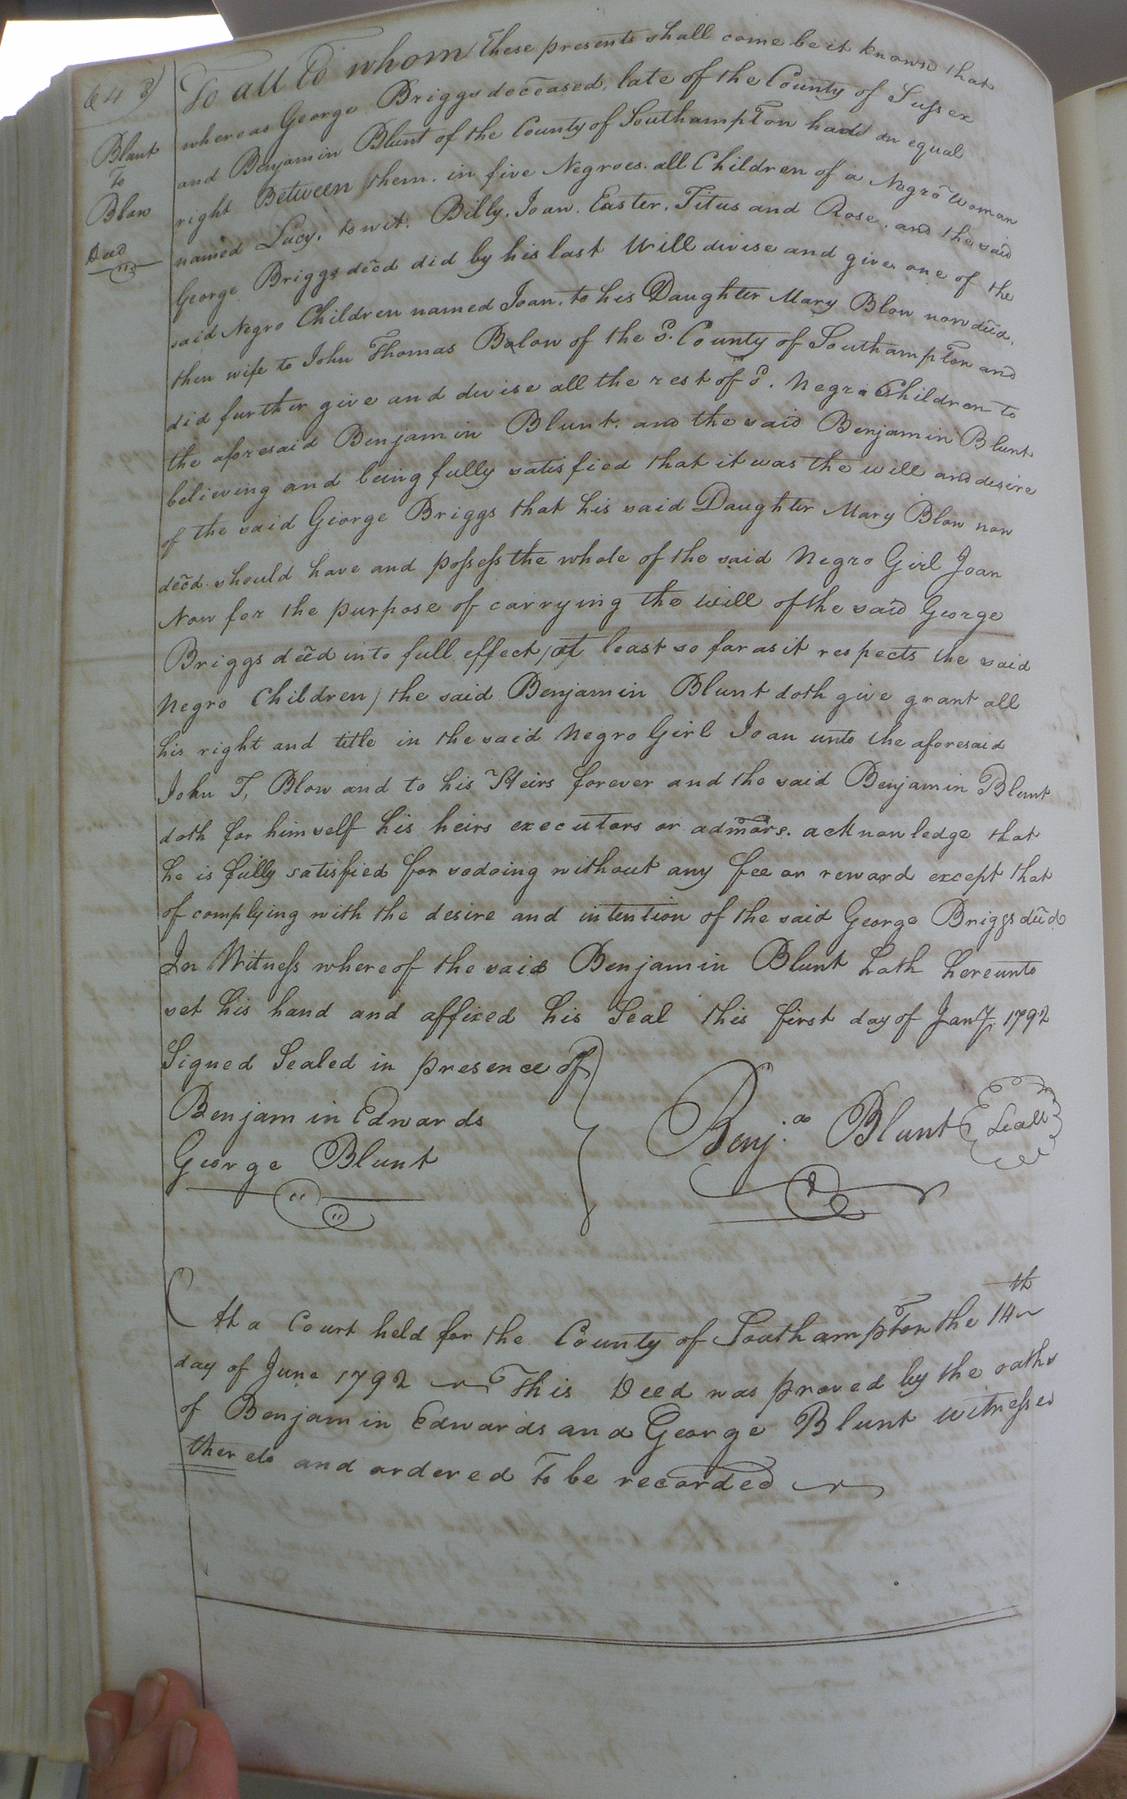 643)
Blunt
To
Blow
Deed
To all to whom These presents shall come be it known that
whereas George Briggs deceased, late of the County of Sussex
and Benjamin Blunt of the County of Southampton had an equal
right Between them. in five Negroes. all Children of a Negro Woman
named Lucy. to wit. Billy. Joan. Easter. Titus and Rose. and the said
George Briggs decd did by his last Will devise and give one of the
said Negro Children named Joan. to his Daughter Mary Blow now decd.
then wife to John Thomas Balow of the sd. County of Southampton and
did further give and devise all the rest of sd. Negro Children to
the aforesaid Benjamin Blunt. and the said Benjamin Blunt
believing and being fully satisfied that it was the will and desire
of the said George Briggs that his said Daughter Mary Blow now
decd should have and possess the whole of the said Negro Girl Joan
Now for the purpose of carrying the will of the said George
Briggs decd into full effect (at least so far as it respects the said
Negro Children) the said Benjamin Blunt doth give grant all
his right and title in the said Negro Girl Joan unto the aforesaid
John T. Blow and to his Heirs forever and the said Benjamin Blunt
doth for himself his heirs executors or admors. acknowledge that
he is fully satisfied for sodoing without any fee or reward except that
of complying with the desire and intention of the said George Briggs decd
In Witness whereof the said Benjamin Blunt hath hereunto
set his hand and affixed his Seal this first day of Jany. 1792
Signed Sealed in presence of
Benjamin Edwards
George Blunt
Benj.a Blunt Seal
At a Court held for the County of Southampton the 14th
day of June 1792 This Deed was proved by the oaths
of Benjamin Edwards and George Blunt witnesses
thereto and ordered To be recorded